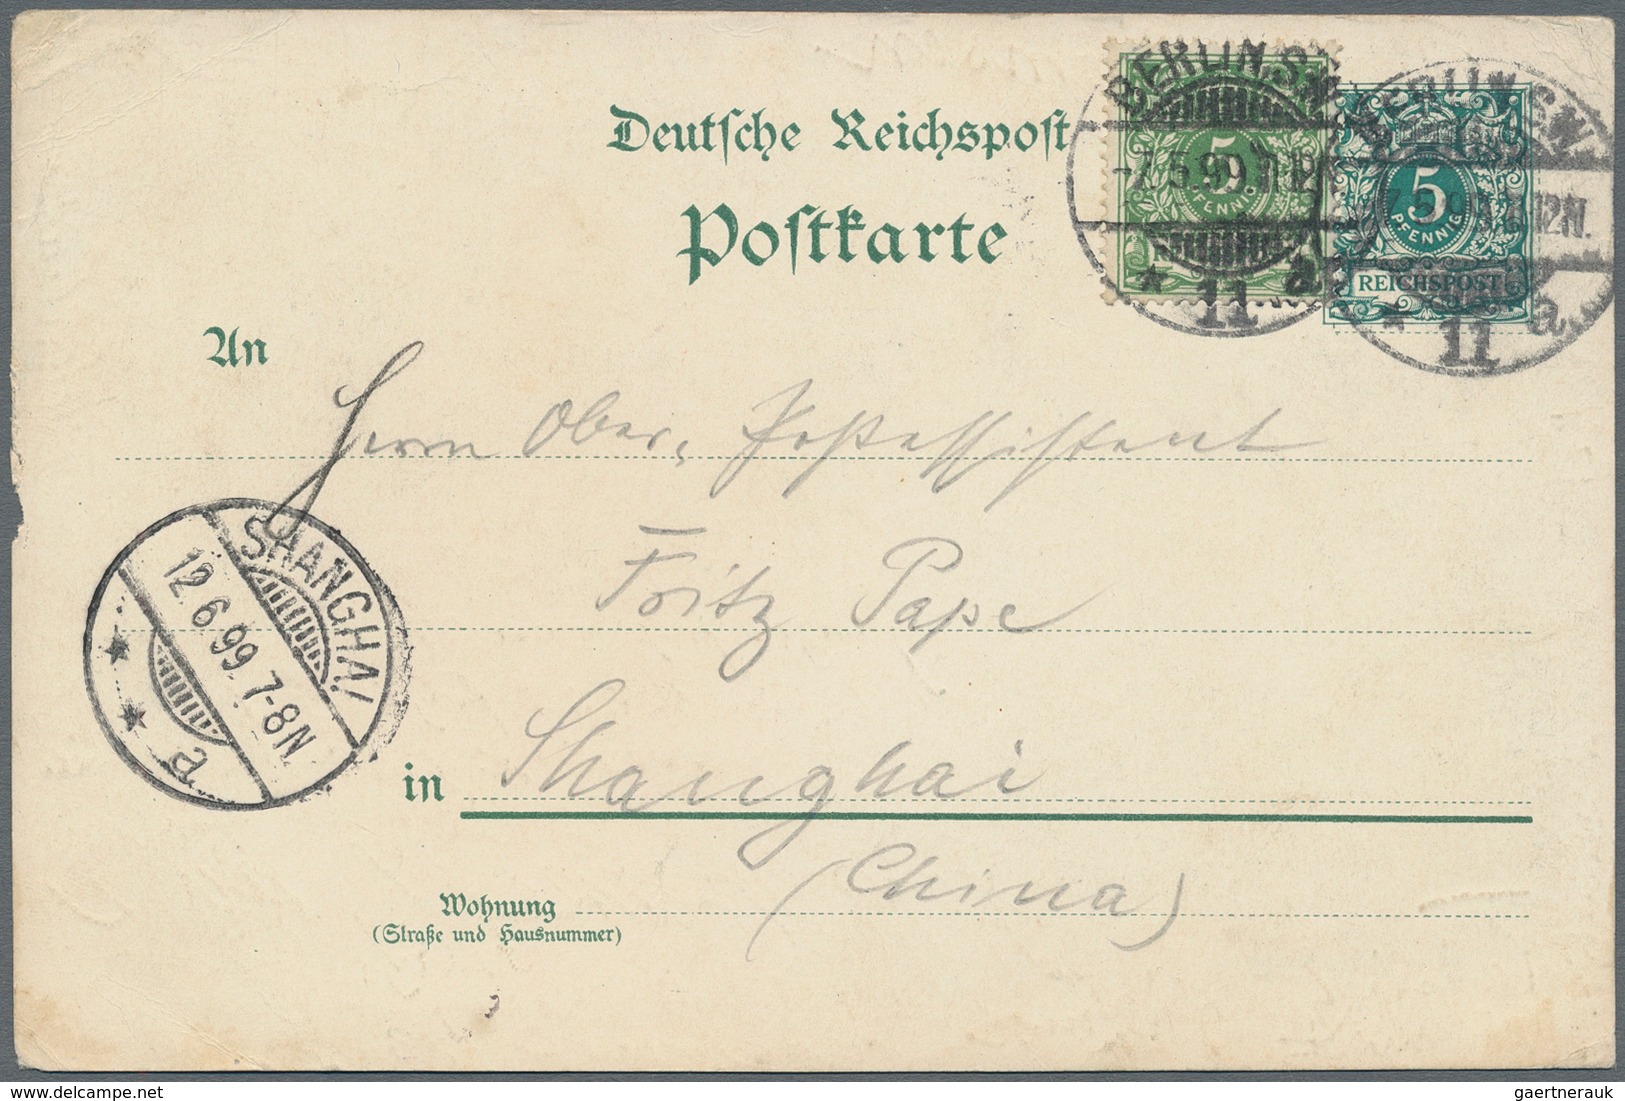 Deutsche Reichspost
Postkarte
BERLIN.S.W.
7.5.99.11-12N.
* 11 a.
5
PFENNIG
BERLIN.S.W.
7.5.99.11-12N.
* 11 a.
5
PFENNIG
REICHSPOST
An
Herrn Ober-Postassistent
Fritz Pape
SHANGHAI
12.6.99.7-8N.
* * a
in Shanghai
(China)
Wohnung
(Straße und Hausnummer)
delcampe.net
gaertnerauk